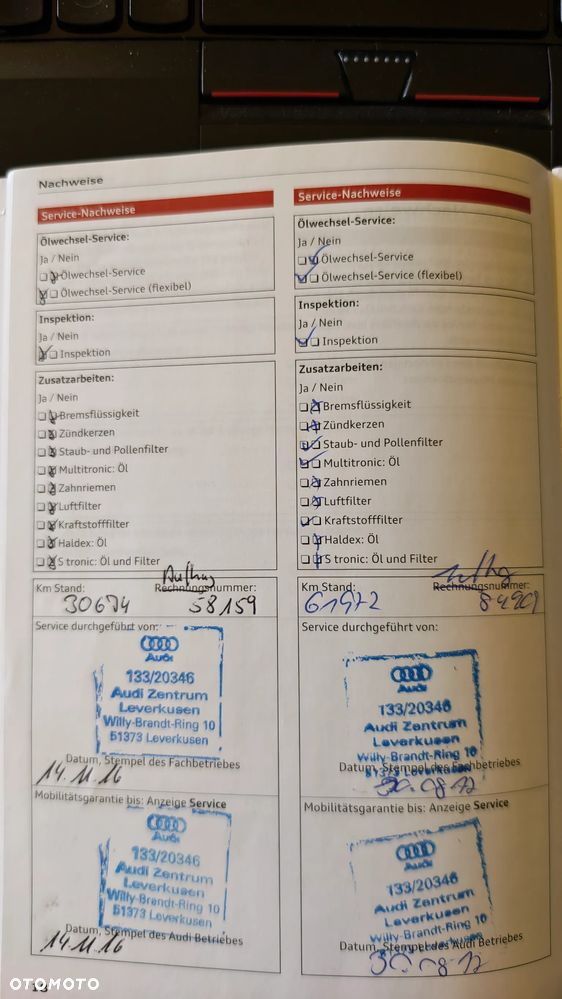 Nachweise
Service-Nachweise
Ölwechsel-Service:
Ja / Nein
Ölwechsel-Service
Ölwechsel-Service (flexibel)
Inspektion:
Ja / Nein
Inspektion
Zusatzarbeiten:
Ja / Nein
Bremsflüssigkeit
Zündkerzen
Staub- und Pollenfilter
Multitronic: Öl
Zahnriemen
Luftfilter
Kraftstofffilter
Haldex: Öl
S tronic: Öl und Filter
Km Stand: Rechnungsnummer:
30674 58159
Service durchgeführt von:
Audi
133/20346
Audi Zentrum
Leverkusen
Willy-Brandt-Ring 10
51373 Leverkusen
Datum, Stempel des Fachbetriebes
14.11.16
Mobilitätsgarantie bis: Anzeige Service
Audi
133/20346
Audi Zentrum
Leverkusen
Willy-Brandt-Ring 10
51373 Leverkusen
Datum, Stempel des Audi Betriebes
14.11.16
Service-Nachweise
Ölwechsel-Service:
Ja / Nein
Ölwechsel-Service
Ölwechsel-Service (flexibel)
Inspektion:
Ja / Nein
Inspektion
Zusatzarbeiten:
Ja / Nein
Bremsflüssigkeit
Zündkerzen
Staub- und Pollenfilter
Multitronic: Öl
Zahnriemen
Luftfilter
Kraftstofffilter
Haldex: Öl
S tronic: Öl und Filter
Km Stand: Rechnungsnummer:
61972
Service durchgeführt von:
Audi
133/20346
Audi Zentrum
Leverkusen
Willy-Brandt-Ring 10
51373 Leverkusen
Datum, Stempel des Fachbetriebes
Mobilitätsgarantie bis: Anzeige Service
Audi
133/20346
Audi Zentrum
Leverkusen
Willy-Brandt-Ring 10
51373 Leverkusen
Datum, Stempel des Audi Betriebes
OTOMOTO